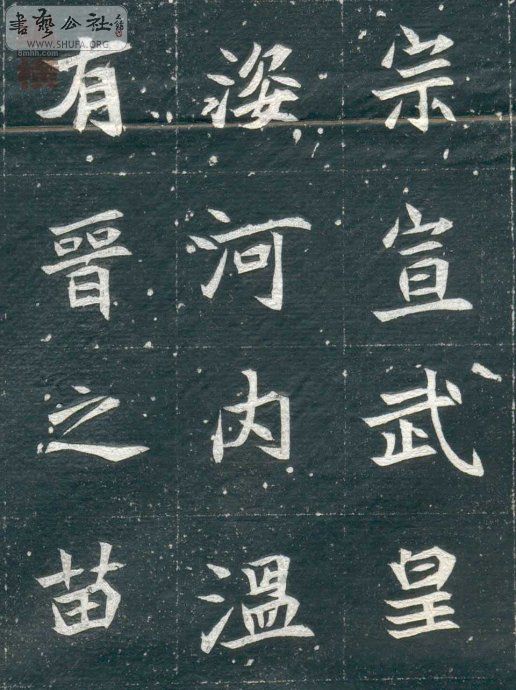 宗宣武皇
姿河内溫
有晉之苗
書藝公社
WWW.SHUFA.ORG